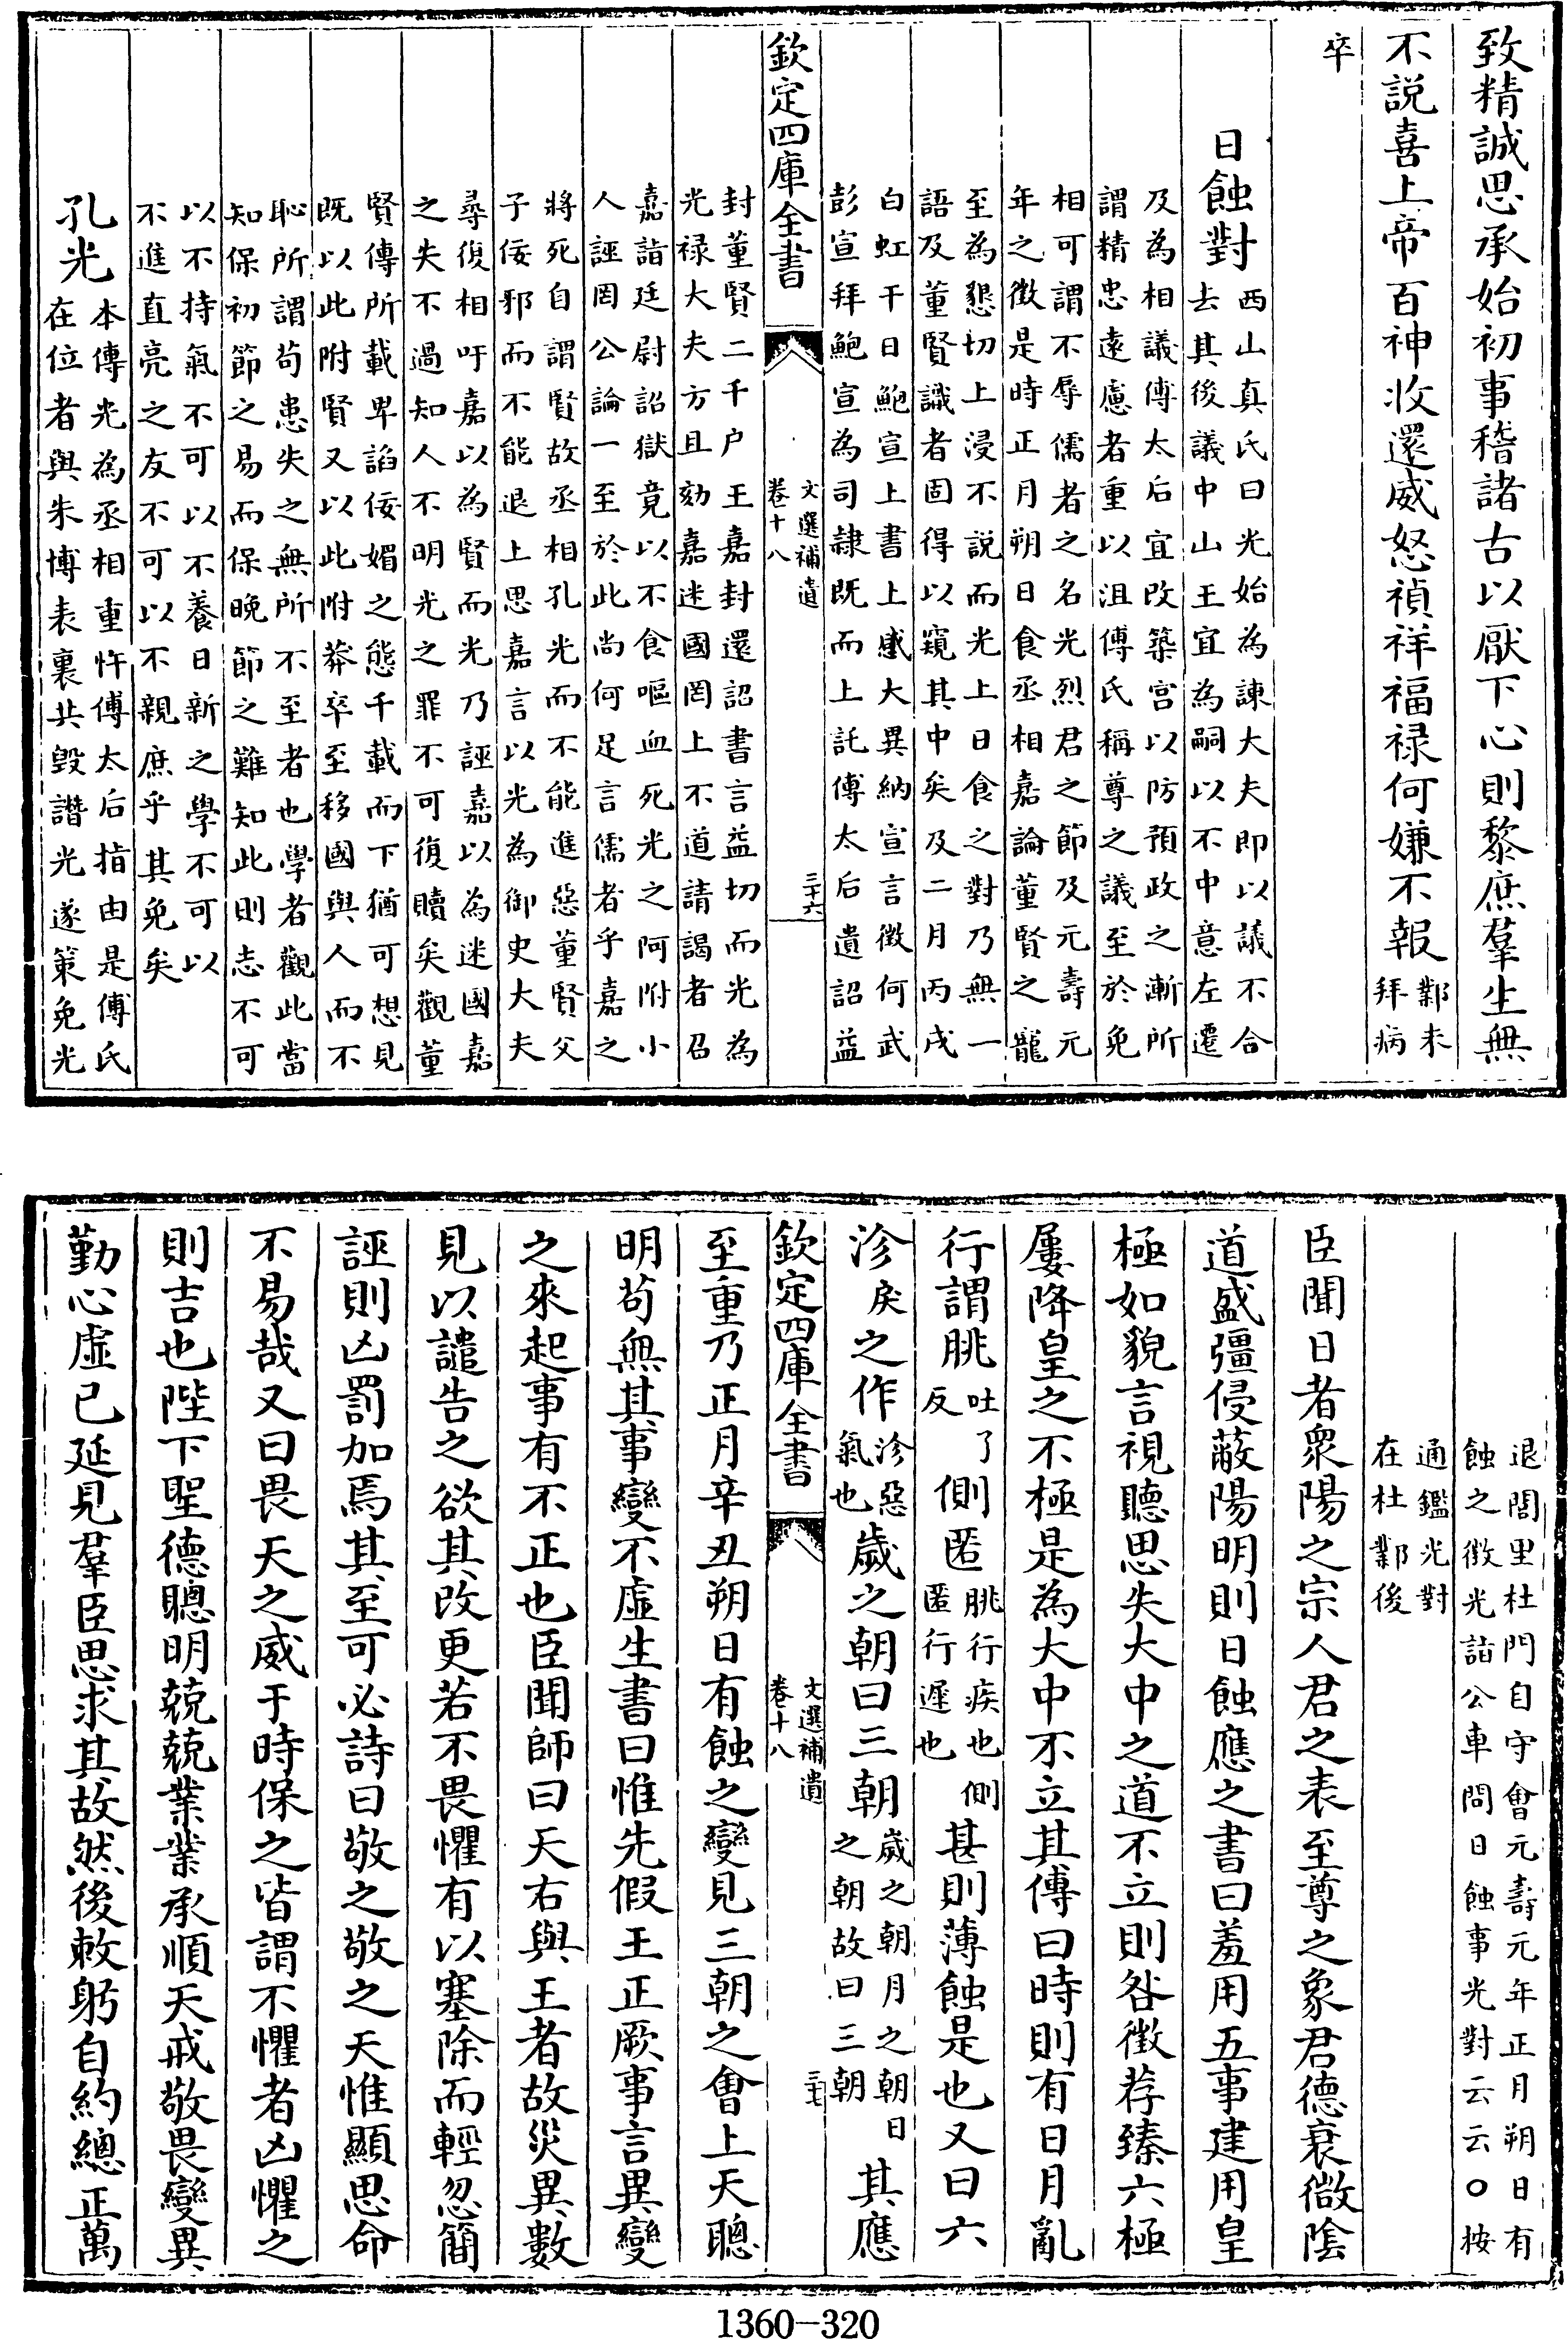 致精誠思承始初事稽諸古以厭下心則黎庶羣生無
不説喜上帝百神收還威怒禎祥福禄何嫌不報鄴未
拜病
卒
日蝕對西山真氏曰光始為諫大夫即以議不合
去其後議中山王宜為嗣以不中意左遷
及為相議傅太后宜改築宫以防預政之漸所
謂精忠遠慮者重以沮傅氏稱尊之議至於免
相可謂不辱儒者之名光烈君之節及元壽元
年之徵是時正月朔日食丞相嘉論董賢之寵
至為懇切上浸不説而光上日食之對乃無一
語及董賢識者固得以窺其中矣及二月丙戌
白虹干日鮑宣上書上感大異納宣言徵何武
彭宣拜鮑宣為司隸既而上託傅太后遺詔益
欽定四庫全書
文選補遺
卷十八
三十六
封董賢二千户王嘉封還詔書言益切而光為
光禄大夫方且劾嘉迷國罔上不道請謁者召
嘉詣廷尉詔獄竟以不食嘔血死光之阿附小
人誣罔公論一至於此尚何足言儒者乎嘉之
將死自謂賢故丞相孔光而不能進惡董賢父
子佞邪而不能退上思嘉言以光為御史大夫
尋復相吁嘉以為賢而光乃誣嘉以為迷國嘉
之失不過知人不明光之罪不可復贖矣觀董
賢傳所載卑諂佞媚之態千載而下猶可想見
既以此附賢又以此附莽卒至移國與人而不
恥所謂苟患失之無所不至者也學者觀此當
知保初節之易而保晚節之難知此則志不可
以不持氣不可以不養日新之學不可以
不進直亮之友不可以不親庶乎其免矣
孔光本傳光為丞相重忤傅太后指由是傅氏
在位者與朱博表裏共毀譖光遂策免光
退閭里杜門自守會元壽元年正月朔日有
蝕之徴光詣公車問日蝕事光對云云○按
通鑑光對
在杜鄴後
臣聞日者衆陽之宗人君之表至尊之象君德衰微陰
道盛彊侵蔽陽明則日蝕應之書曰羞用五事建用皇
極如貌言視聽思失大中之道不立則咎徵荐臻六極
屢降皇之不極是為大中不立其傳曰時則有日月亂
行謂朓吐了
反側匿朓行疾也側
匿行遲也甚則薄蝕是也又曰六
沴戾之作沴惡
氣也歲之朝曰三朝歲之朝月之朝日
之朝故曰三朝其應
欽定四庫全書
文選補遺
卷十八
三十七
至重乃正月辛丑朔日有蝕之變見三朝之會上天聰
明苟無其事變不虛生書曰惟先假王正厥事言異變
之來起事有不正也臣聞師曰天右與王者故災異數
見以譴告之欲其改更若不畏懼有以塞除而輕忽簡
誣則凶罰加焉其至可必詩曰敬之敬之天惟顯思命
不易哉又曰畏天之威于時保之皆謂不懼者凶懼之
則吉也陛下聖德聰明兢兢業業承順天戒敬畏變異
勤心虛已延見羣臣思求其故然後敕躬自約總正萬
1360-320